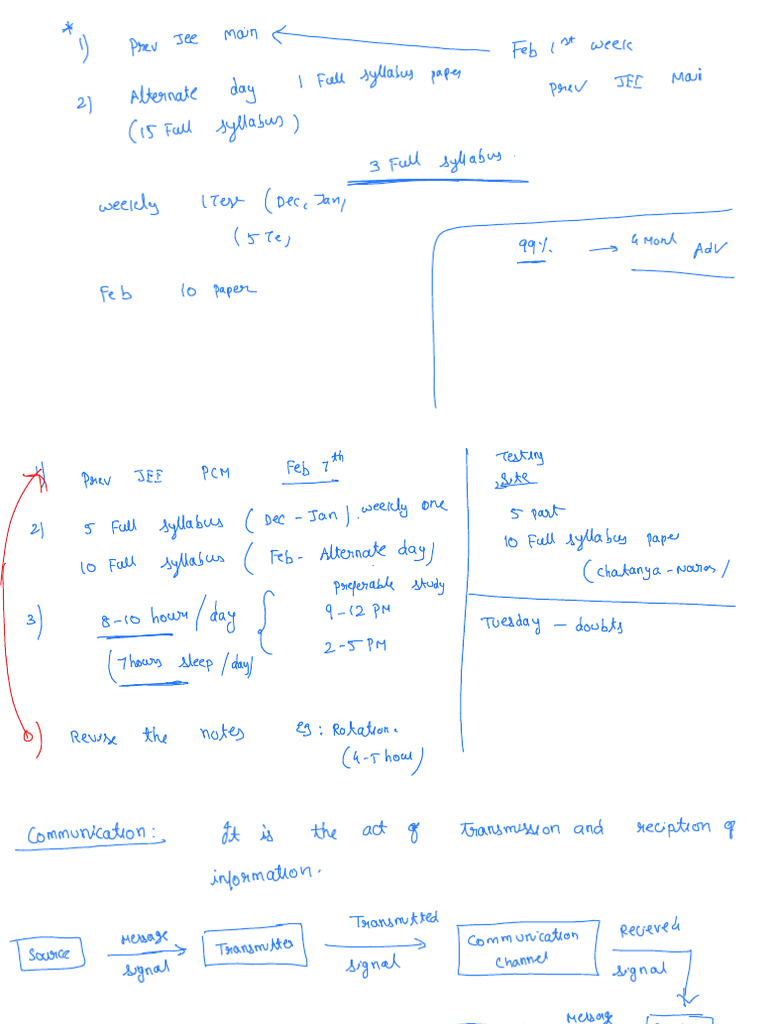 * 1) Prev Jee Main
Feb 1st week
Prev JEE Mai
2) Alternate day 1 Full syllabus paper
(15 Full syllabus)
3 Full syllabus.
weekly 1 Test (Dec, Jan,
(5 Te,
Feb 10 paper
99% → 4 Mont Adv
1) Prev JEE PCM Feb 7th
2) 5 Full syllabus (Dec - Jan). weekly one
10 Full syllabus (Feb - Alternate day)
3) 8-10 hours/day
(7 hours sleep/day)
preferable study
9-12 PM
2-5 PM
0) Revise the notes Eg: Rotation.
(4-5 hour)
Testing
Site
5 part
10 Full syllabus paper
(Chatanya-
Tuesday - doubts
Communication: It is the act of transmission and reciption of
information.
Source
Message
signal
Transmitter
Transmitted
signal
Communication
Channel
Recieved
signal
Message